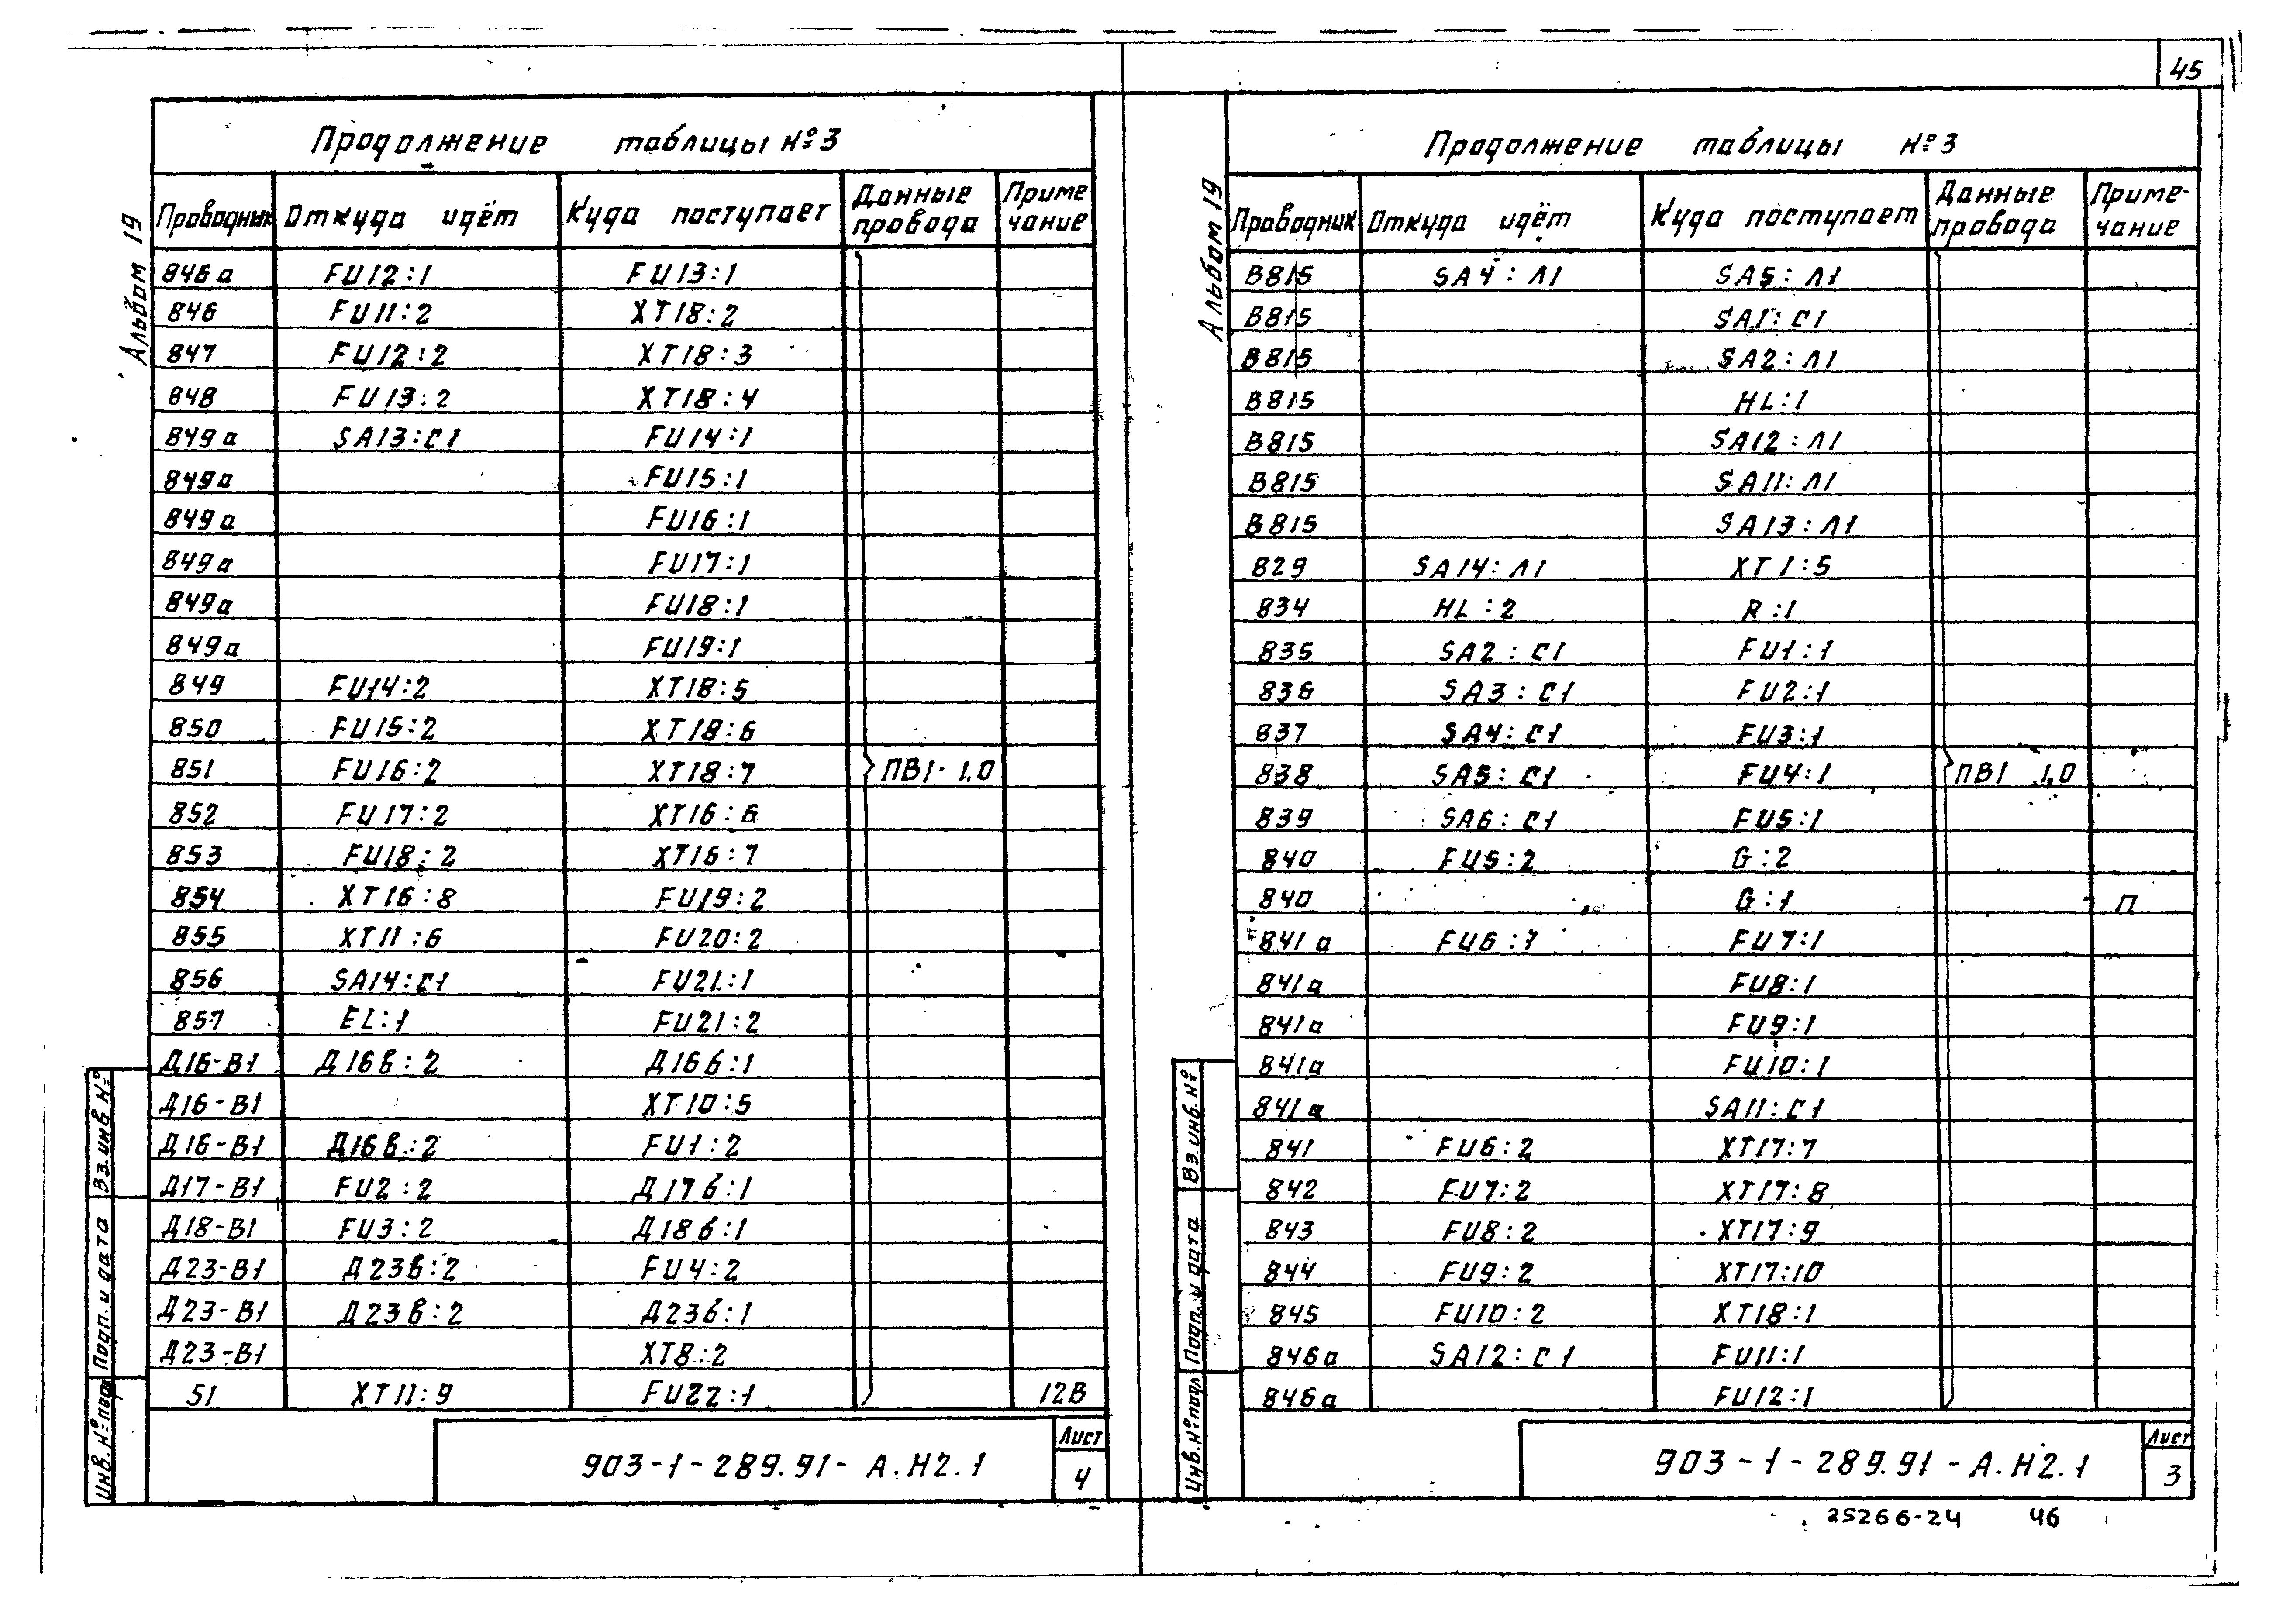 45
Альбом 19
Продолжение таблицы №3
Проводник Откуда идёт Куда поступает Данные провода Приме чание
846а FU12:1 FU13:1
846 FU11:2 XT18:2
847 FU12:2 XT18:3
848 FU13:2 XT18:4
849а SA13:С1 FU14:1
849а FU15:1
849а FU16:1
849а FU17:1
849а FU18:1
849а FU19:1
849 FU14:2 XT18:5
850 FU15:2 XT18:6
851 FU16:2 XT18:7 ПВ1 1,0
852 FU17:2 XT16:6
853 FU18:2 XT16:7
854 XT16:8 FU19:2
855 XT11:6 FU20:2
856 SA14:С1 FU21:1
857 EL:1 FU21:2
Д16-В1 Д16в:2 Д16б:1
Д16-В1 XT10:5
Д16-В1 Д16в:2 FU1:2
Д17-В1 FU2:2 Д17б:1
Д18-В1 FU3:2 Д18б:1
Д23-В1 Д23в:2 FU4:2
Д23-В1 Д23в:2 Д23б:1
Д23-В1 XT8:2
51 XT11:9 FU22:1 12В
903-1-289.91-А.Н2.1
Лист
4
Инв.№подл Подп. и дата Вз.инв №
Альбом 19
Продолжение таблицы №3
Проводник Откуда идёт Куда поступает Данные провода Приме- чание
В815 SA4:Л1 SA5:Л1
В815 SA1:С1
В815 SA2:Л1
В815 HL:1
В815 SA12:Л1
В815 SA11:Л1
В815 SA13:Л1
829 SA14:Л1 XT1:5
834 HL:2 R:1
835 SA2:С1 FU1:1
836 SA3:С1 FU2:1
837 SA4:С1 FU3:1
838 SA5:С1 FU4:1 ПВ1 1,0
839 SA6:С1 FU5:1
840 FU5:2 G:2
840 G:1 П
841а FU6:1 FU7:1
841а FU8:1
841а FU9:1
841а FU10:1
841а SA11:С1
841 FU6:2 XT17:7
842 FU7:2 XT17:8
843 FU8:2 XT17:9
844 FU9:2 XT17:10
845 FU10:2 XT18:1
846а SA12:С1 FU11:1
846а FU12:1
903-1-289.91-А.Н2.1
Лист
3
Инв.№подл Подп. и дата Вз.инв.№
25266-24 46